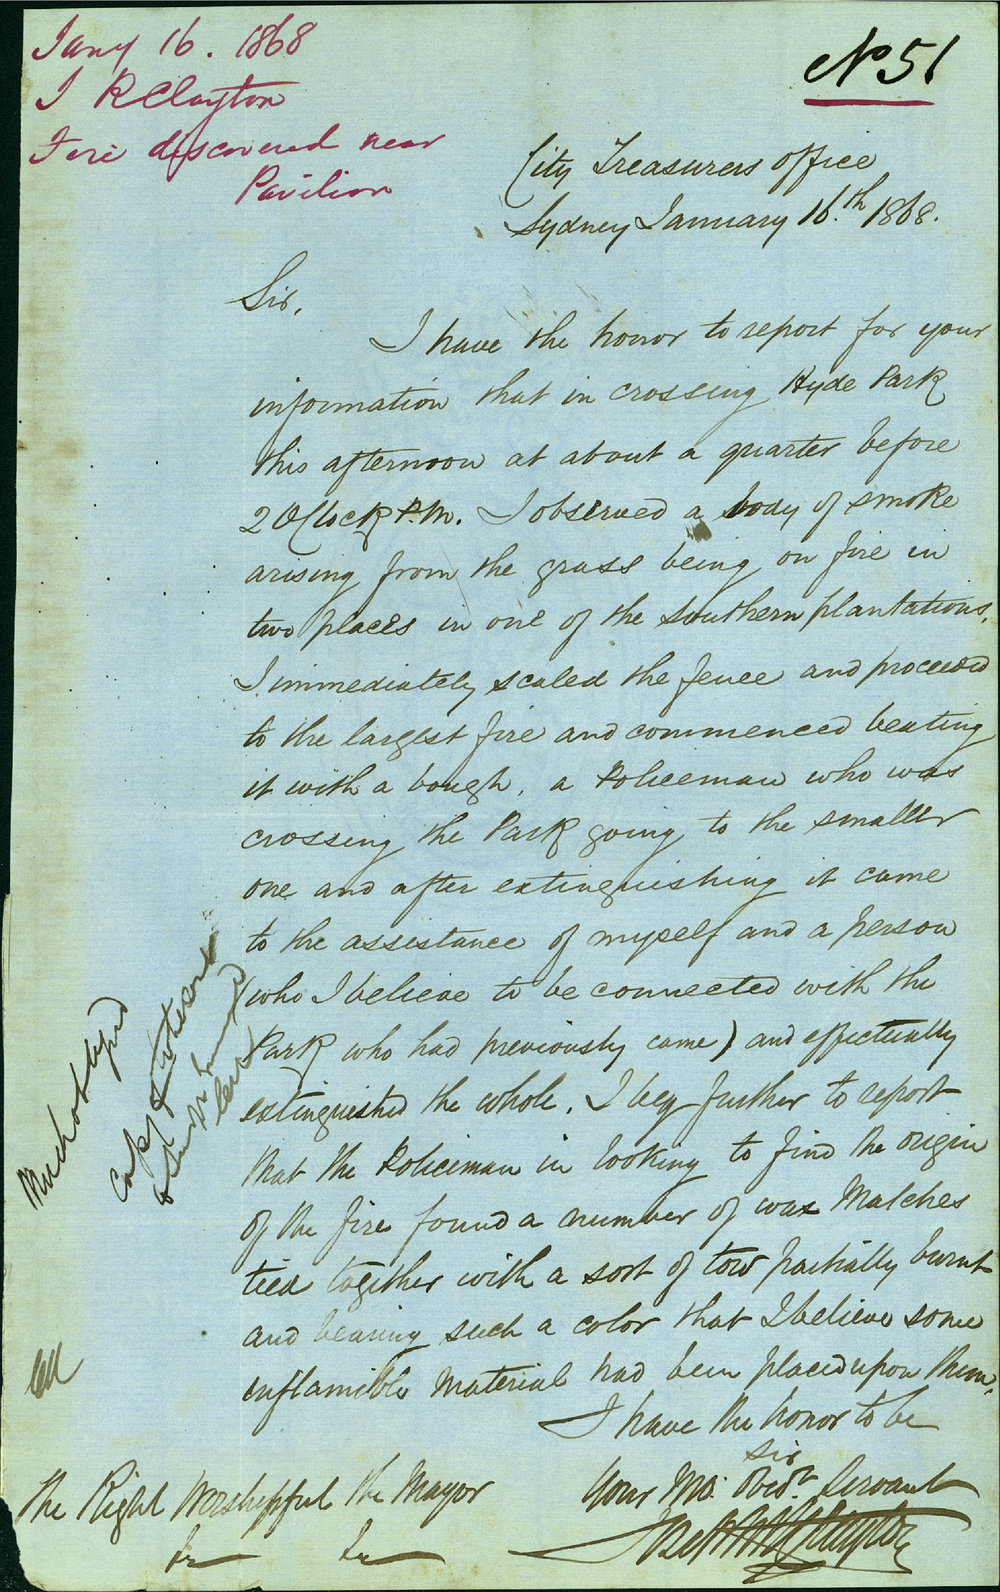 Jany 16. 1868
J R Clayton
Fire discovered near
Pavilion
No 51
City Treasurers office
Sydney January 16.th 1868.
Sir,
I have the honor to report for your
information that in crossing Hyde Park
this afternoon at about a quarter before
2 OClock P.M. I observed a body of smoke
arising from the grass being on fire in
two places in one of the Southern plantations,
I immediately scaled the fence and proceeded
to the largest fire and commenced beating
it with a bough, a Policeman who was
crossing the Park going to the smaller
one and after extinguishing it came
to the assistance of myself and a person
(who I believe to be connected with the
Park who had previously came) and effectually
extinguished the whole. I beg further to report
that the Policeman in looking to find the origin
of the fire found a number of wax Matches
tied together with a sort of tow partially burnt
and bearing such a color that I believe some
inflamible material had been placed upon them,
I have the honor to be
Sir
Your Mo. Obedt. Servant
The Right Worshipful the Mayor
&c &c
Clayton